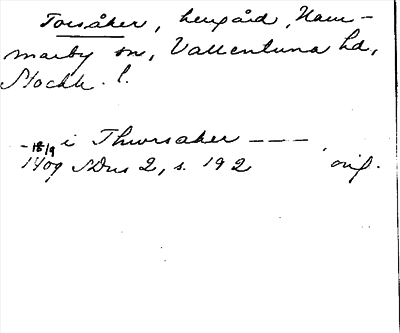 Torsåker, herrgård, Ham-
marby sn, Vallentuna hd,
Stockh. l.
- 18/9 i Thorsaker - - -
1409 SDns 2, s. 192 orig.